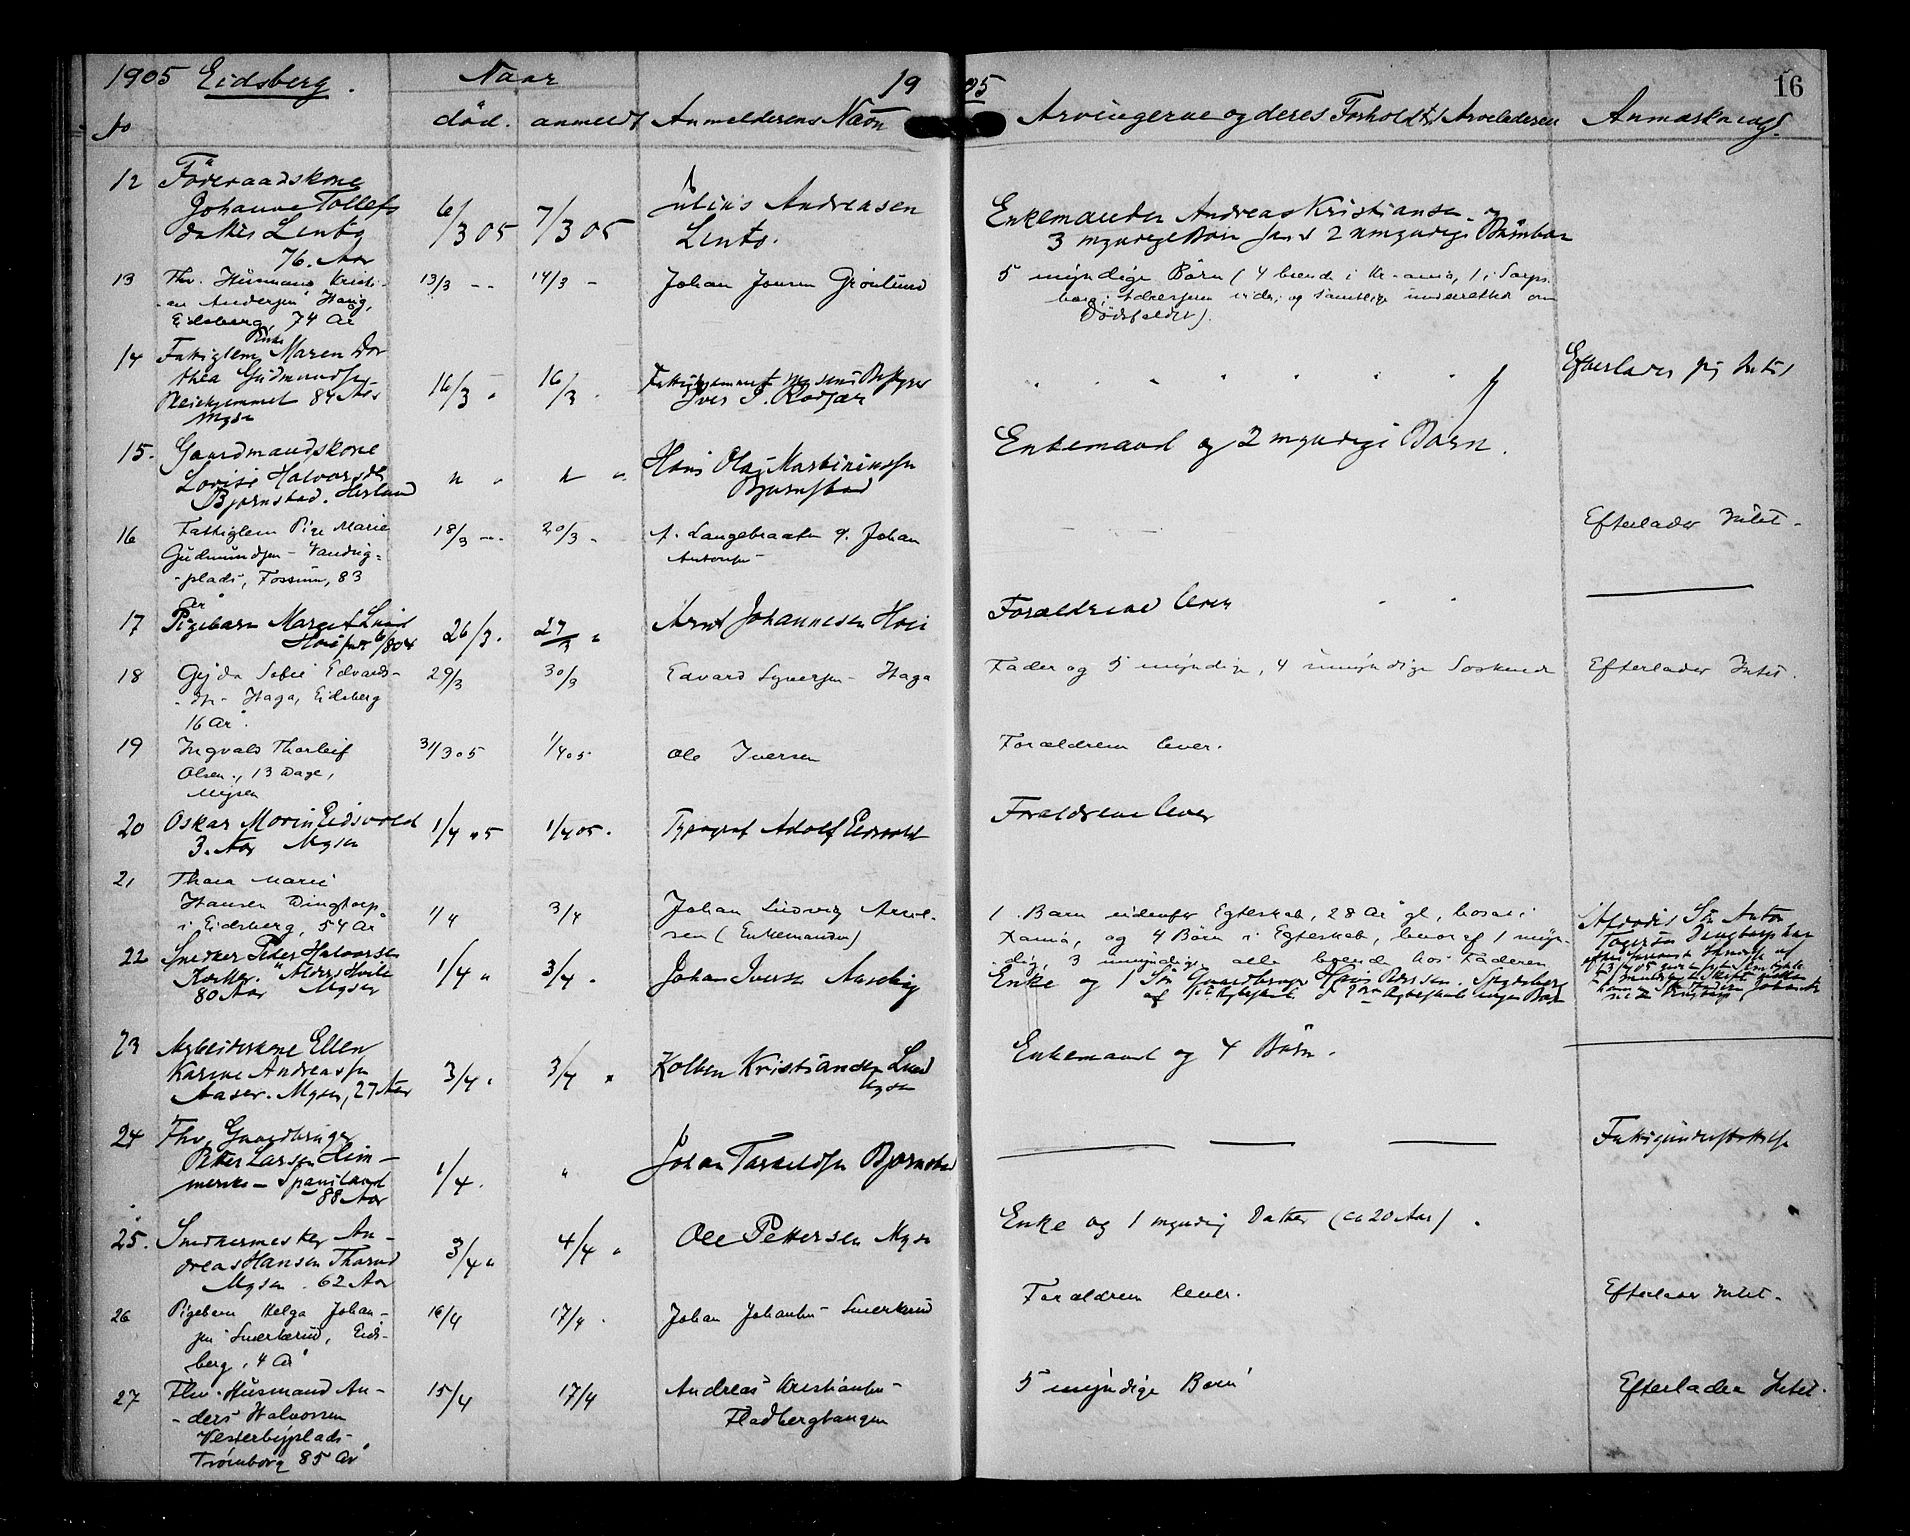 1905 Eidsberg. Naar 1905 16
No død. anmeldt Anmelderens Navn Arvingerne og deres Forhold til Arveladeren Anmærkning.
12 Föderaadskone
Johanne Tollefs
datter Lento
76. Aar
6/3 05 7/3 05
Julius Andreasen
Lento.
Enkemanden Andreas Kristiansen og
3 myndige Børn samt 2 umyndige Børnebørn
13 Fhv. Husmand Kristi-
an Andersen Haug,
Eidsberg, 74 År
13/3 - - 14/3 -
Johan Jonsen Grönlund
5 myndige Børn (4 boende i Kr-ania, 1 i Sarps-
borg, Adressen vides, og samtlige underrettet om
Dödsfaldet).
14 Fattiglem Pike Maren Dor
thea Gudmundsen
Pleiehjemmet 84 Aar
Mysen
16/3 " 16/3 "
Fattighjemmet Mysens Bestyrer
Iver P. Rodsær
Efterlader sig Intet
15. Gaardmandskone
Lovise Halvorsdtr
Bjørnstad. Herland
" " " "
Hans Olaf Martiniussen
Bjørnstad
Enkemand og 2 myndige Børn.
16 Fattiglem Pige Marie
Gudmundsen - Vandug-
-plads, Fossum, 83 År
18/3 -- 20/3 -
A. Langebraaten g. Johan
Antonsen
Efterlader Intet.
17 Pigebarn Margit Lovise
Hoie født 6/8 04
26/3. 27/3 "
Arnt Johannesen Hoie
Forældrene lever
18 Gyda Sofie Edvards-
dtr - Haga, Eidsberg
16 År.
29/3 30/3
Edvard Syversen - Haga
Fader og 5 myndige, 4 umyndige Söskende
Efterlader Intet.
19 Ingvald Thorleif
Olsen., 13 Dage,
Mysen
31/3 05 1/4 05
Ole Iversen
Forældrene lever.
20 Oskar Morin Eidsvold
3. Aar Mysen
1/4 05 1/4 05.
Typograf Adolf Eidsvold
Forældrene lever
21 Thea Marie
Hansen Dingtorp
i Eidsberg, 54 År
1/4 3/4
Johan Ludvig Arnt-
sen (Enkemanden)
1. Barn udenfor Egteskab, 28 År gl, bosat i
Kania, og 4 Børn i Egteskab, hvoraf 1 myn-
dig, 3 umyndige alle boende hos Faderen
Afdödes Sön Anton
22 Snedker Peder Halvorsen
80 Aar Mysen
1/4 " 3/4 "
Johan Iversen Aaseby
Enke og 1 Sön Gaardbruger Hans Pedersen. Spydeberg
af 1ste Egteskab. I 2den Egteskab ingen Barn
23 Arbeiderkone Ellen
Karine Andreassen
Aaser. Mysen, 27 Aar
3/4 " 3/4 "
Kolben Kristiansen Lund
Mysen
Enkemand og 4 Børn.
24 Fhv. Gaardbruger
Peter Larsen Him-
merik - Spaniland
88 Aar
1/4. "
Johan Torkeldsen Bjørnstad
Fattigunderstøttelse
25. Snedkermester An-
dreas Hansen Thorud
Mysen. 62 Aar
3/4 " 4/4 "
Ole Pettersen Mysen
Enke og 1 myndig Datter (ca 20 Aar).
26 Pigebarn Helga Johan-
sen Smerkerud, Eids-
berg, 4 År
16/4 17/4.
Johan Johansen - Smerkerud
Forældrene lever.
Efterlader Intet.
27 Fhv. Husmand An-
-ders Halvorsen
Vesterbyplads-
Trömborg 85 År
15/4 17/4
Andreas Kristiansen -
Fladbergtangen
5 myndige Børn
Efterlader Intet.